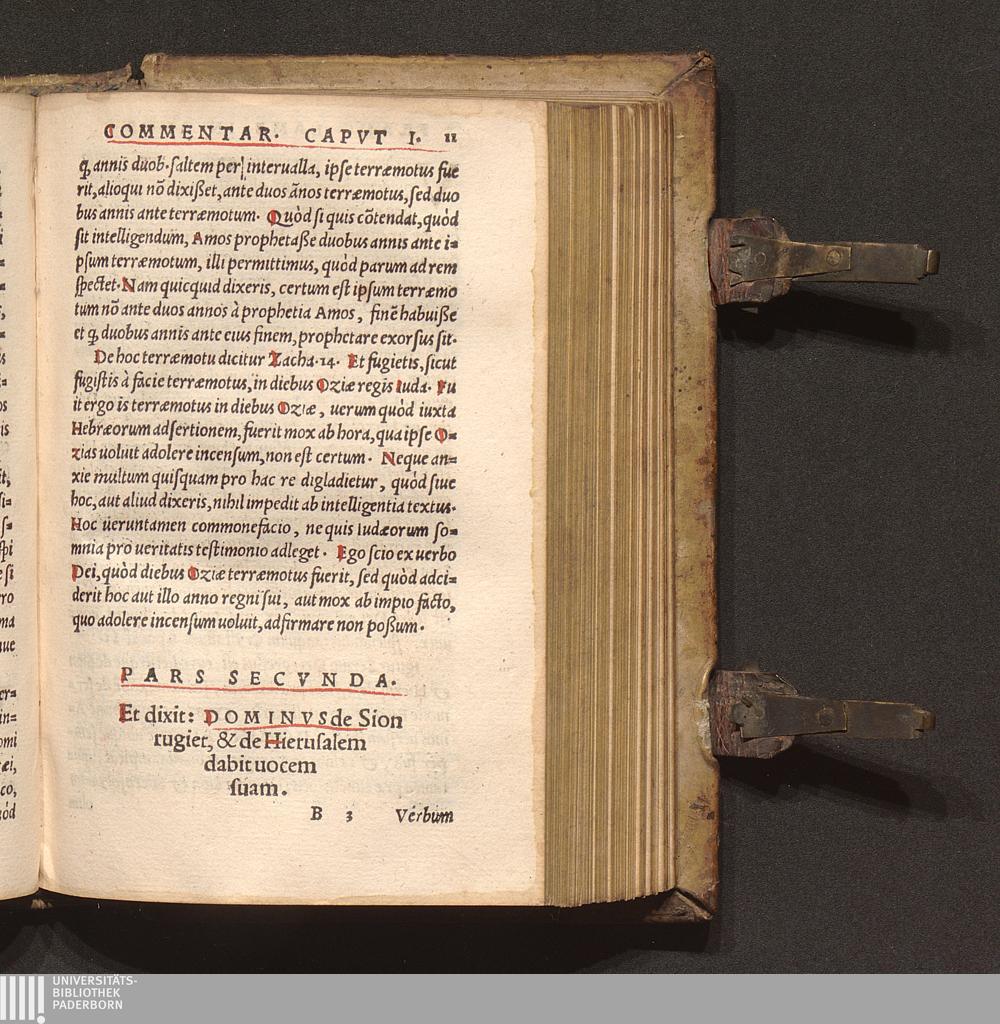 COMMENTAR. CAPVT I. 11
ꝙ annis duob. saltem per interualla, ipse terræmotus fue
rit, alioqui nõ dixißet, ante duos ãnos terræmotus, sed duo
bus annis ante terræmotum. Quòd si quis cõtendat, quòd
sit intelligendum, Amos prophetaße duobus annis ante i=
psum terræmotum, illi permittimus, quòd parum ad rem
spectet. Nam quicquid dixeris, certum est ipsum terræmo
tum nõ ante duos annos à prophetia Amos, finẽ habuiße
et ꝙ duobus annis ante eius finem, prophetare exorsus sit.
De hoc terræmotu dicitur Zacha. 14. Et fugietis, sicut
fugistis à facie terræmotus, in diebus Oziæ regis Iuda. Fu
it ergo is terræmotus in diebus Oziæ, uerum quòd iuxta
Hebræorum adsertionem, fuerit mox ab hora, qua ipse O=
zias uoluit adolere incensum, non est certum. Neque an=
xie multum quisquam pro hac re digladietur, quòd siue
hoc, aut aliud dixeris, nihil impedit ab intelligentia textus.
Hoc ueruntamen commonefacio, ne quis Iudæorum so=
mnia pro ueritatis testimonio adleget. Ego scio ex uerbo
Dei, quòd diebus Oziæ terræmotus fuerit, sed quòd adci=
derit hoc aut illo anno regni sui, aut mox ab impio facto,
quo adolere incensum uoluit, adfirmare non poßum.
PARS SECVNDA.
Et dixit: DOMINVS de Sion
rugiet, & de Hierusalem
dabit uocem
suam.
B 3 Verbum
UNIVERSITÄTS-
BIBLIOTHEK
PADERBORN